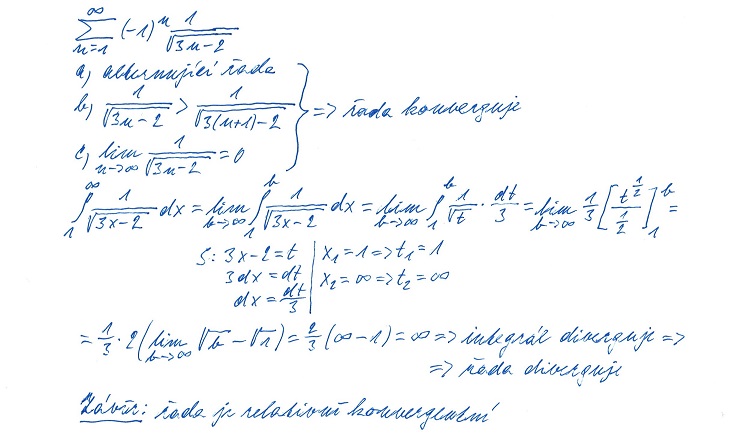 ∑_{n=1}^{∞} (-1)^n 1/√(3n-2)
a) alternující řada
b) 1/√(3n-2) > 1/√(3(n+1)-2) } => řada konverguje
c) lim_{n->∞} 1/√(3n-2) = 0
∫_1^∞ 1/√(3x-2) dx = lim_{b->∞} ∫_1^b 1/√(3x-2) dx = lim_{b->∞} ∫_1^b 1/√t · dt/3 = lim_{b->∞} 1/3 [t^{1/2}/(1/2)]_1^b =
S: 3x-2=t | x₁=1=>t₁=1
3dx=dt | x₂=∞=>t₂=∞
dx=dt/3
= 1/3 · 2(lim_{b->∞} √b - √1) = 2/3 (∞-1) = ∞ => integrál diverguje =>
=> řada diverguje
Závěr: řada je relativně konvergentní